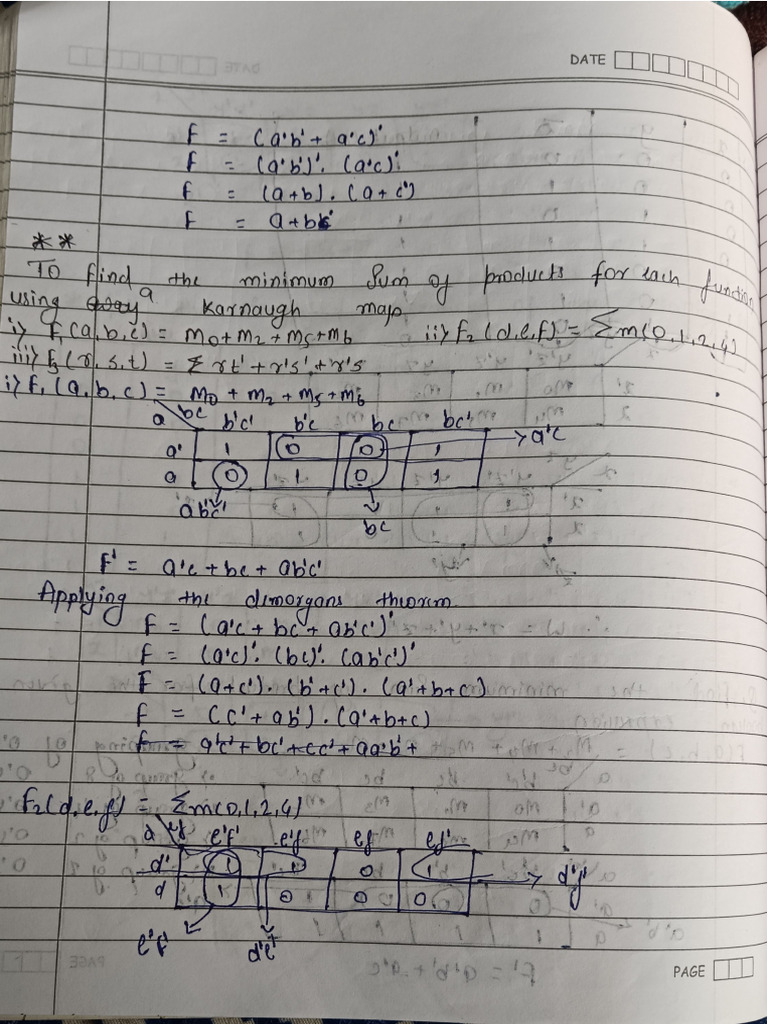 DATE
F = (a'b' + a'c)'
F = (a'b')' . (a'c)'
F = (a+b) . (a+c')
F = a+bc'
**
To find the minimum sum of products for each function
using a Karnaugh map
i) F₁(a,b,c) = m0+m2+m5+m6 ii) F₂(d,e,f) = Σm(0,1,2,4)
iii) F₃(r,s,t) = Σ rt'+r's'+r's
i) F₁(a,b,c) = m0+m2+m5+m6
a bc b'c' b'c bc bc'
a' 1 0 0 1 → a'c
a 0 1 0 1
ab'c' bc
F' = a'c + bc + ab'c'
Applying the dimorgans theorem
F = (a'c + bc + ab'c')'
F = (a'c)' . (bc)' . (ab'c')'
F = (a+c') . (b'+c') . (a'+b+c)
F = (c'+ab') . (a'+b+c)
F = a'c'+bc'+cc'+aa'b'+
F₂(d,e,f) = Σm(0,1,2,4)
d ef e'f' e'f ef ef'
d' 1 1 0 1 → d'f'
d 1 0 0 0
e'f' d'e'
PAGE